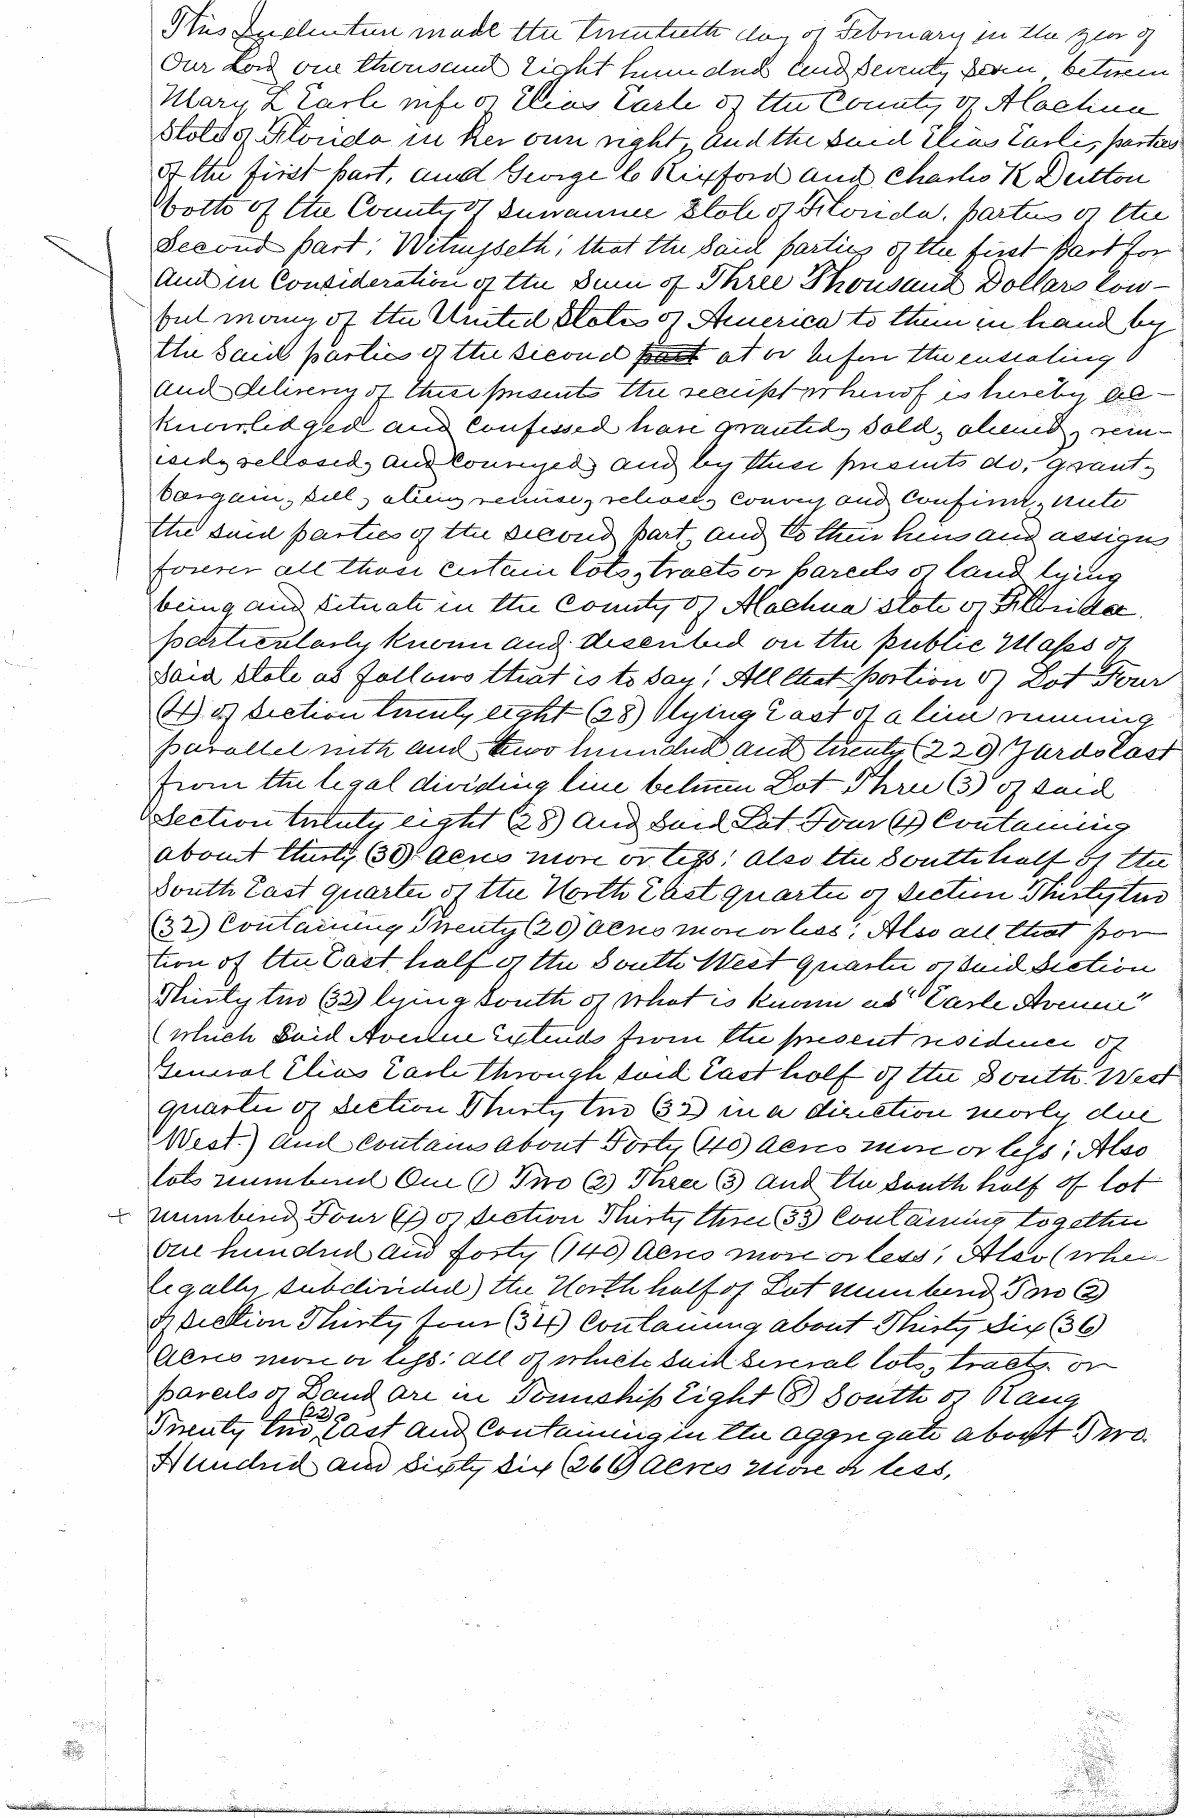 This Indenture made the twentieth day of February in the year of
Our Lord one thousand Eight hundred and Seventy Seven, between
Mary L Earle wife of Elias Earle of the County of Alachua
State of Florida in her own right, and the said Elias Earle, parties
of the first part, and George C Rixford and Charles K Dutton
both of the County of Suwannee State of Florida, parties of the
Second part; Witnesseth; that the said parties of the first part for
and in Consideration of the Sum of Three Thousand Dollars law-
ful money of the United States of America to them in hand by
the Said parties of the second part at or before the ensealing
and delivery of these presents the receipt whereof is hereby ac-
knowledged and Confessed have granted, Sold, aliened, rem-
ised, released, and Conveyed, and by these presents do, grant,
bargain, sell, alien, remise, release, convey and Confirm, unto
the said parties of the second part, and to their heirs and assigns
forever all those certain lots, tracts or parcels of land lying
being and situate in the County of Alachua State of Florida.
particularly known and described on the public Maps of
Said State as follows that is to say; All that portion of Lot Four
(4) of Section twenty eight (28) lying East of a line running
parallel with and two hundred and twenty (220) Yards East
from the legal dividing line between Lot Three (3) of said
Section twenty eight (28) and said Lot Four (4) Containing
about thirty (30) acres more or less; also the South half of the
South East quarter of the North East quarter of Section Thirty two
(32) Containing Twenty (20) acres more or less; Also all that por
tion of the East half of the South West quarter of said Section
Thirty two (32) lying South of what is known as "Earle Avenue"
(which Said Avenue Extends from the present residence of
General Elias Earle through said East half of the South West
quarter of Section Thirty two (32) in a direction nearly due
West.) and contains about Forty (40) acres more or less; Also
lots numbered One (1) Two (2) Three (3) and the South half of lot
numbered Four (4) of Section Thirty three (33) Containing together
One hundred and forty (140) acres more or less; Also (when
legally subdivided) the North half of Lot numbered Two (2)
of Section Thirty four (34) Containing about Thirty Six (36)
acres more or less: all of which said several lots, tracts or
parcels of Land are in Township Eight (8) South of Rang
Twenty two (22) East and Containing in the aggregate about Two
Hundred and Sixty Six (266) acres more or less,